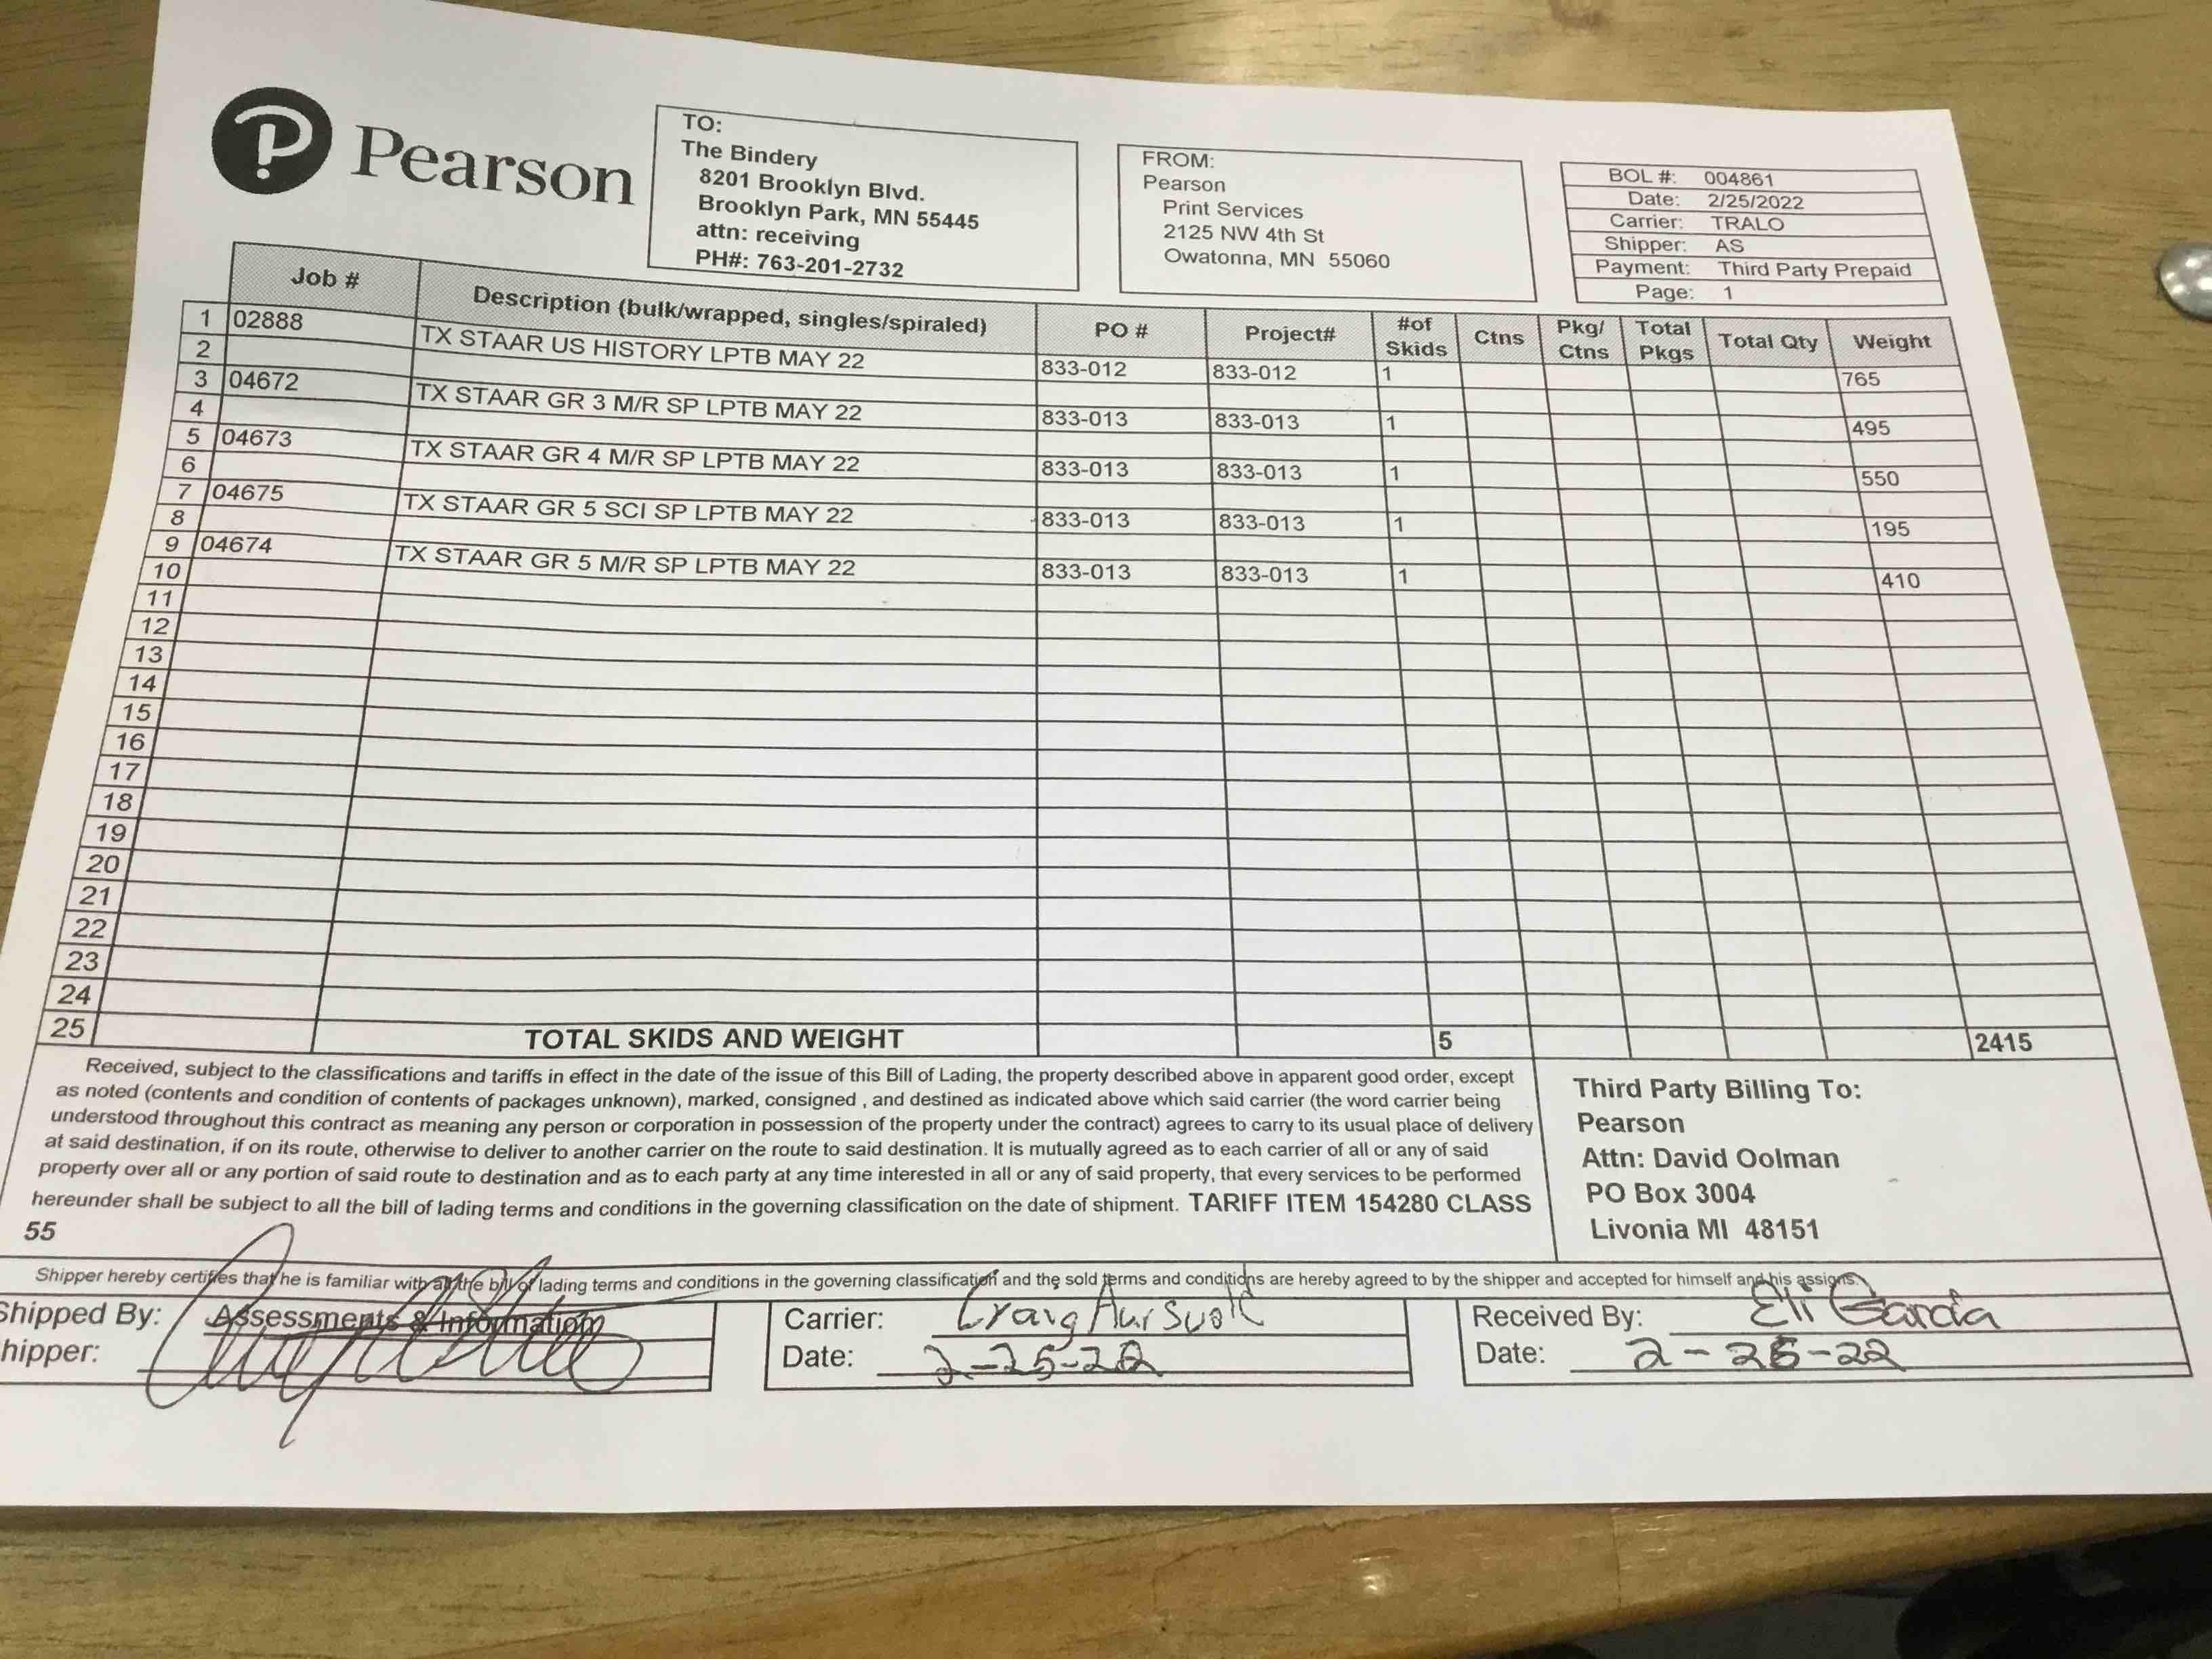 Pearson
TO:
The Bindery
8201 Brooklyn Blvd.
Brooklyn Park, MN 55445
attn: receiving
PH#: 763-201-2732
FROM:
Pearson
Print Services
2125 NW 4th St
Owatonna, MN 55060
BOL #: 004861
Date: 2/25/2022
Carrier: TRALO
Shipper: AS
Payment: Third Party Prepaid
Page: 1
Job # Description (bulk/wrapped, singles/spiraled) PO # Project# #of Skids Ctns Pkg/ Ctns Total Pkgs Total Qty Weight
1 02888 TX STAAR US HISTORY LPTB MAY 22 833-012 833-012 1 765
2
3 04672 TX STAAR GR 3 M/R SP LPTB MAY 22 833-013 833-013 1 495
4
5 04673 TX STAAR GR 4 M/R SP LPTB MAY 22 833-013 833-013 1 550
6
7 04675 TX STAAR GR 5 SCI SP LPTB MAY 22 833-013 833-013 1 195
8
9 04674 TX STAAR GR 5 M/R SP LPTB MAY 22 833-013 833-013 1 410
10
11
12
13
14
15
16
17
18
19
20
21
22
23
24
25 TOTAL SKIDS AND WEIGHT 5 2415
Received, subject to the classifications and tariffs in effect in the date of the issue of this Bill of Lading, the property described above in apparent good order, except
as noted (contents and condition of contents of packages unknown), marked, consigned , and destined as indicated above which said carrier (the word carrier being
understood throughout this contract as meaning any person or corporation in possession of the property under the contract) agrees to carry to its usual place of delivery
at said destination, if on its route, otherwise to deliver to another carrier on the route to said destination. It is mutually agreed as to each carrier of all or any of said
property over all or any portion of said route to destination and as to each party at any time interested in all or any of said property, that every services to be performed
hereunder shall be subject to all the bill of lading terms and conditions in the governing classification on the date of shipment. TARIFF ITEM 154280 CLASS
55
Third Party Billing To:
Pearson
Attn: David Oolman
PO Box 3004
Livonia MI 48151
Shipper hereby certifies that he is familiar with all the bill of lading terms and conditions in the governing classification and the sold terms and conditions are hereby agreed to by the shipper and accepted for himself and his assigns.
Shipped By: Assessments & Information
hipper:
Carrier: Craig
Date: 2-25-22
Received By: Eli Garcia
Date: 2-25-22